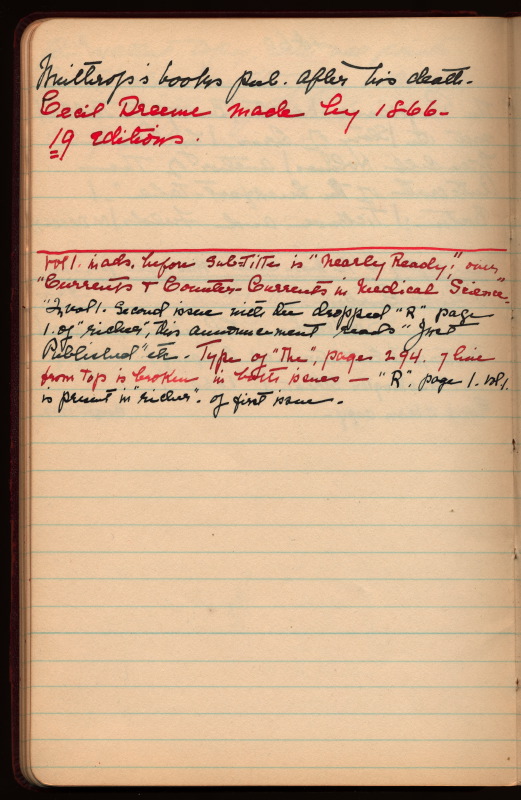 Winthrop's books pub. after his death.
Cecil Dreeme made by 1866-
19 editions.
Vol 1. in ads. before sub-title is "Nearly Ready," over
"Currents & Counter-Currents in Medical Science"
In vol 1. Second issue with the dropped "R", page
1. of "richer", this announcement reads "Just
Published" etc. Type of "The", page 294. 7 line
from top is broken in both issues — "R", page 1. vol 1.
is present in "richer". of first issue.